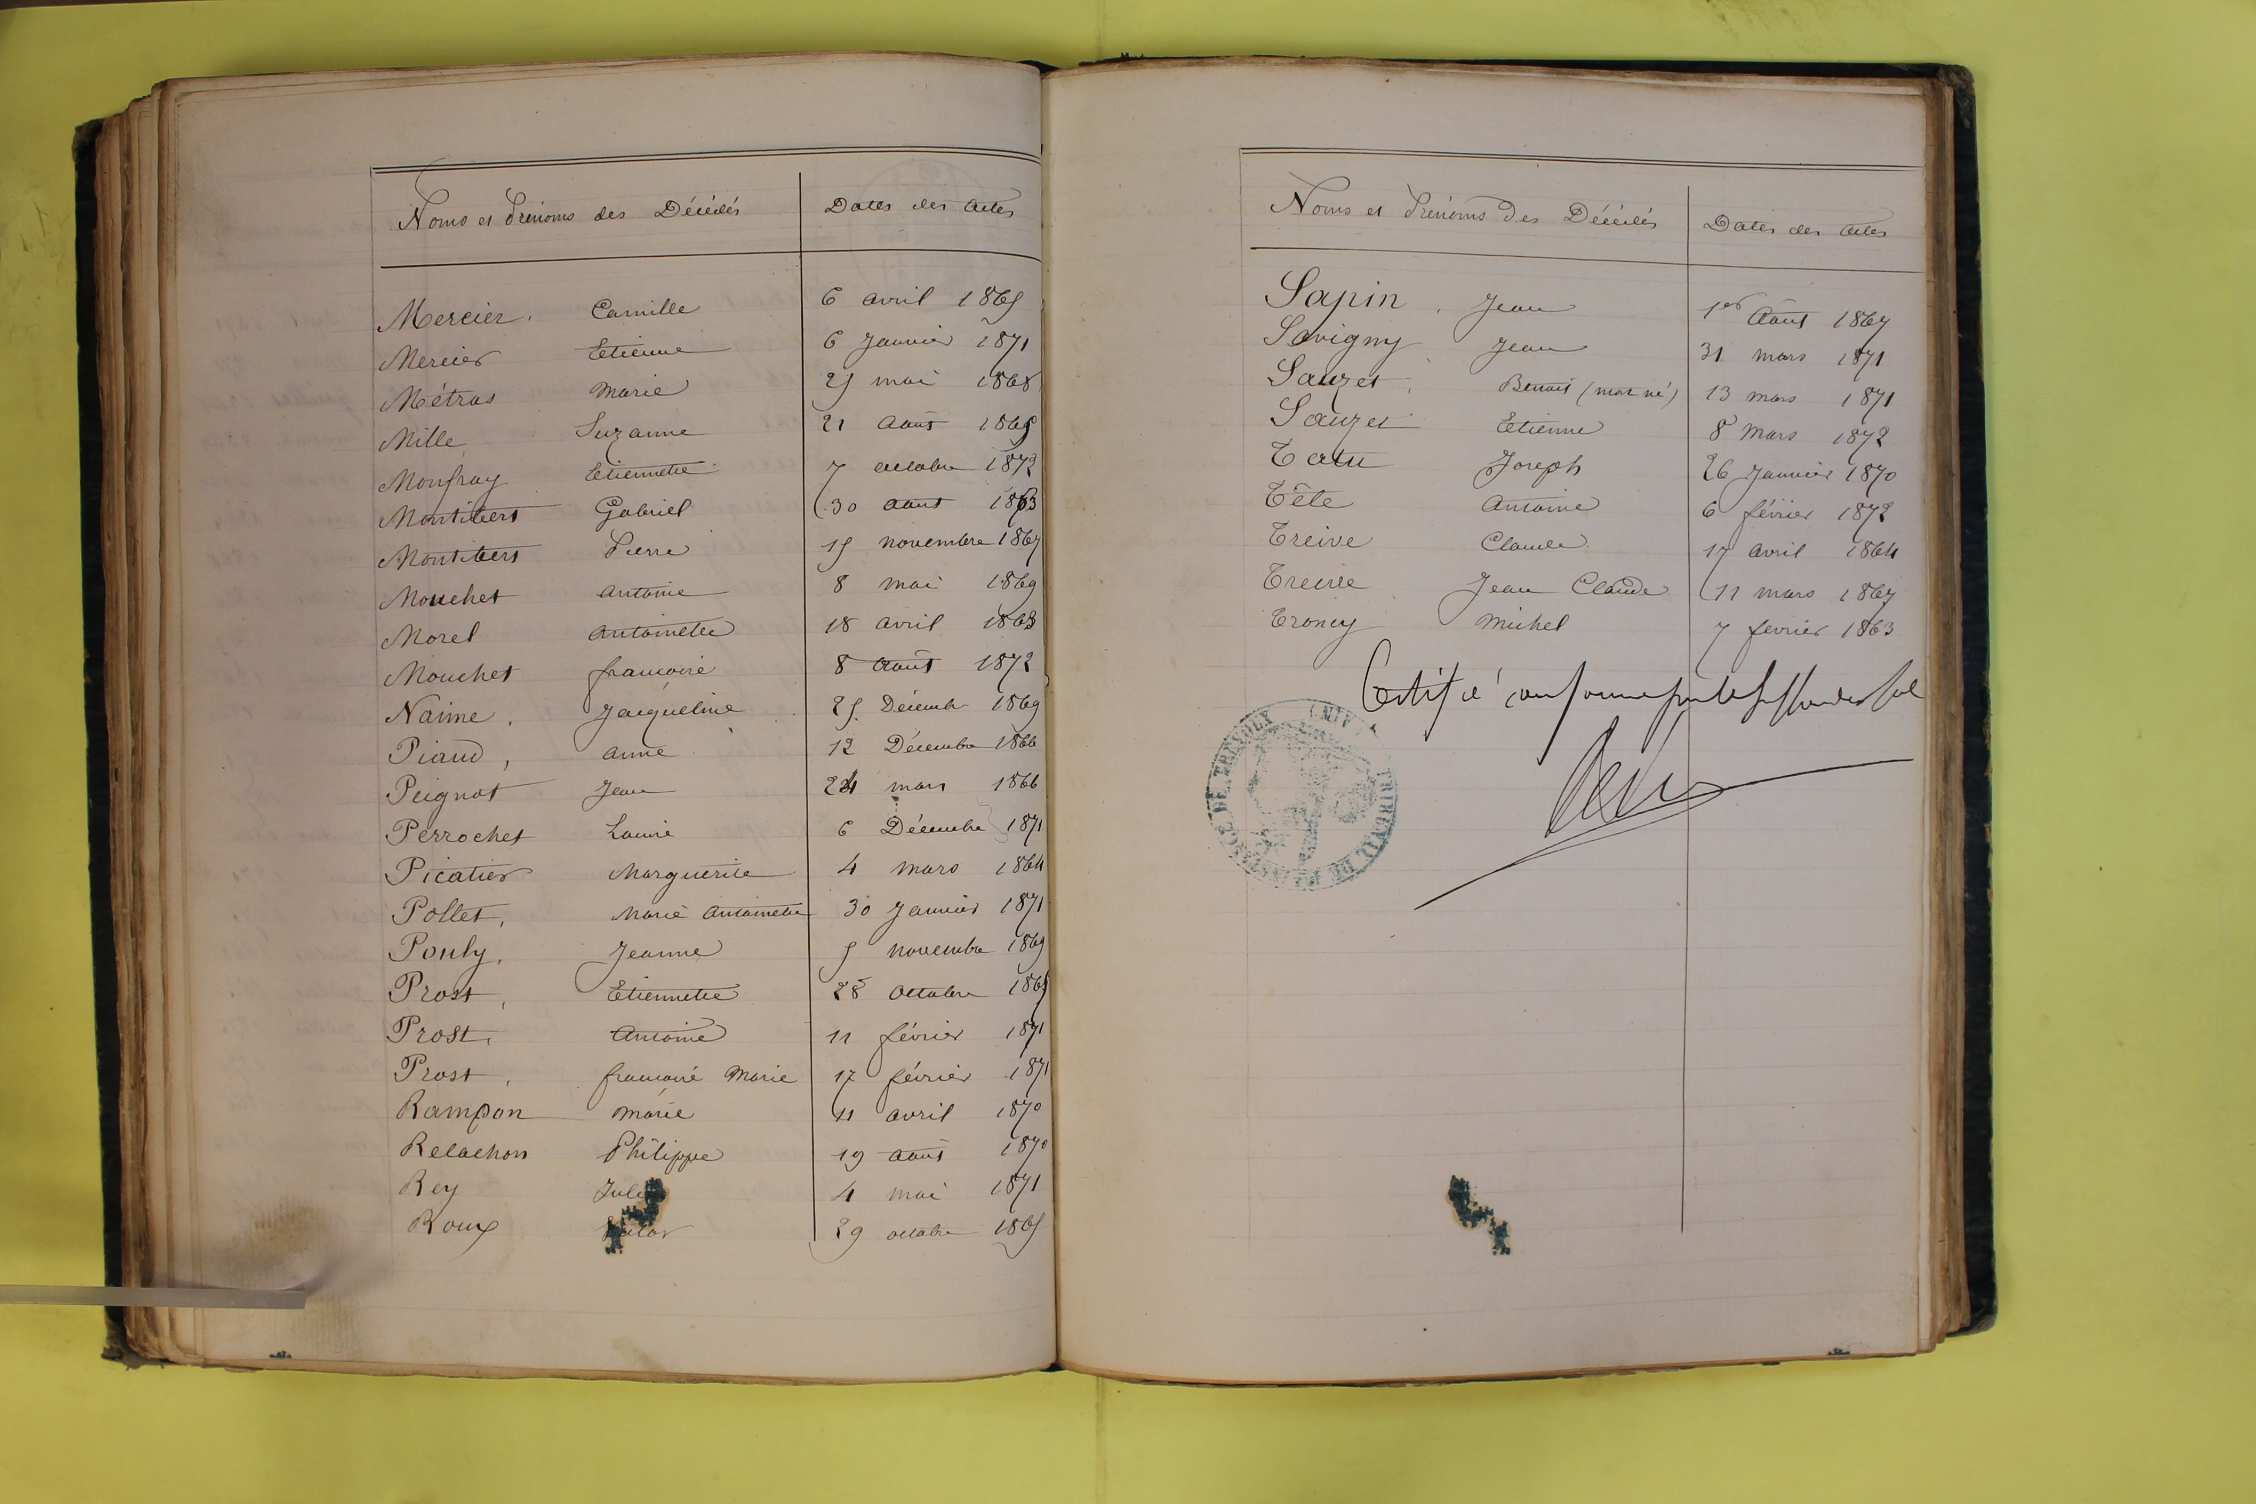 Noms et Prénoms des Décédés Dates des Actes
Mercier. Camille 6 avril 1865
Mercier Etienne 6 Janvier 1871
Métras Marie 25 mai 1868
Mille Suzanne 21 Aout 1865
Monfray Etiennette 7 octobre 1872
Montibert Gabriel 30 Aout 1863
Montibert Pierre 15 novembre 1867
Mouchet Antoine 8 mai 1869
Morel Antoinette 18 avril 1868
Mouchet françoise 8 Août 1872
Naime. Jacqueline 25 Décembre 1869
Piaud, Anne 12 Décembre 1866
Peignot Jean 24 mars 1866
Perrochet Louise 6 Décembre 1871
Picatier Marguerite 4 mars 1864
Pollet, Marie Antoinette 30 Janvier 1871
Pouly, Jeanne 5 novembre 1869
Prost, Etiennette 28 Octobre 1865
Prost, Antoine 11 février 1871
Prost, françoise Marie 17 février 1871
Rampon Marie 11 avril 1870
Relachon Philippe 19 Aout 1870
Rey 4 mai 1871
Roux 29 octobre 1865
Noms et Prénoms des Décédés Dates des Actes
Sapin, Jean 1er Aout 1867
Savigny Jean 31 mars 1871
Sauzet, Benoit (mort né) 13 mars 1871
Sauzet Etienne 8 Mars 1872
Tatu Joseph 26 Janvier 1870
Tête Antoine 6 février 1872
Treive Claude 17 Avril 1864
Treive Jean Claude 11 mars 1867
Troncy Michel 7 fevrier 1863
Certifié conforme par le
TRIBUNAL DE 1ère INSTANCE DE TREVOUX